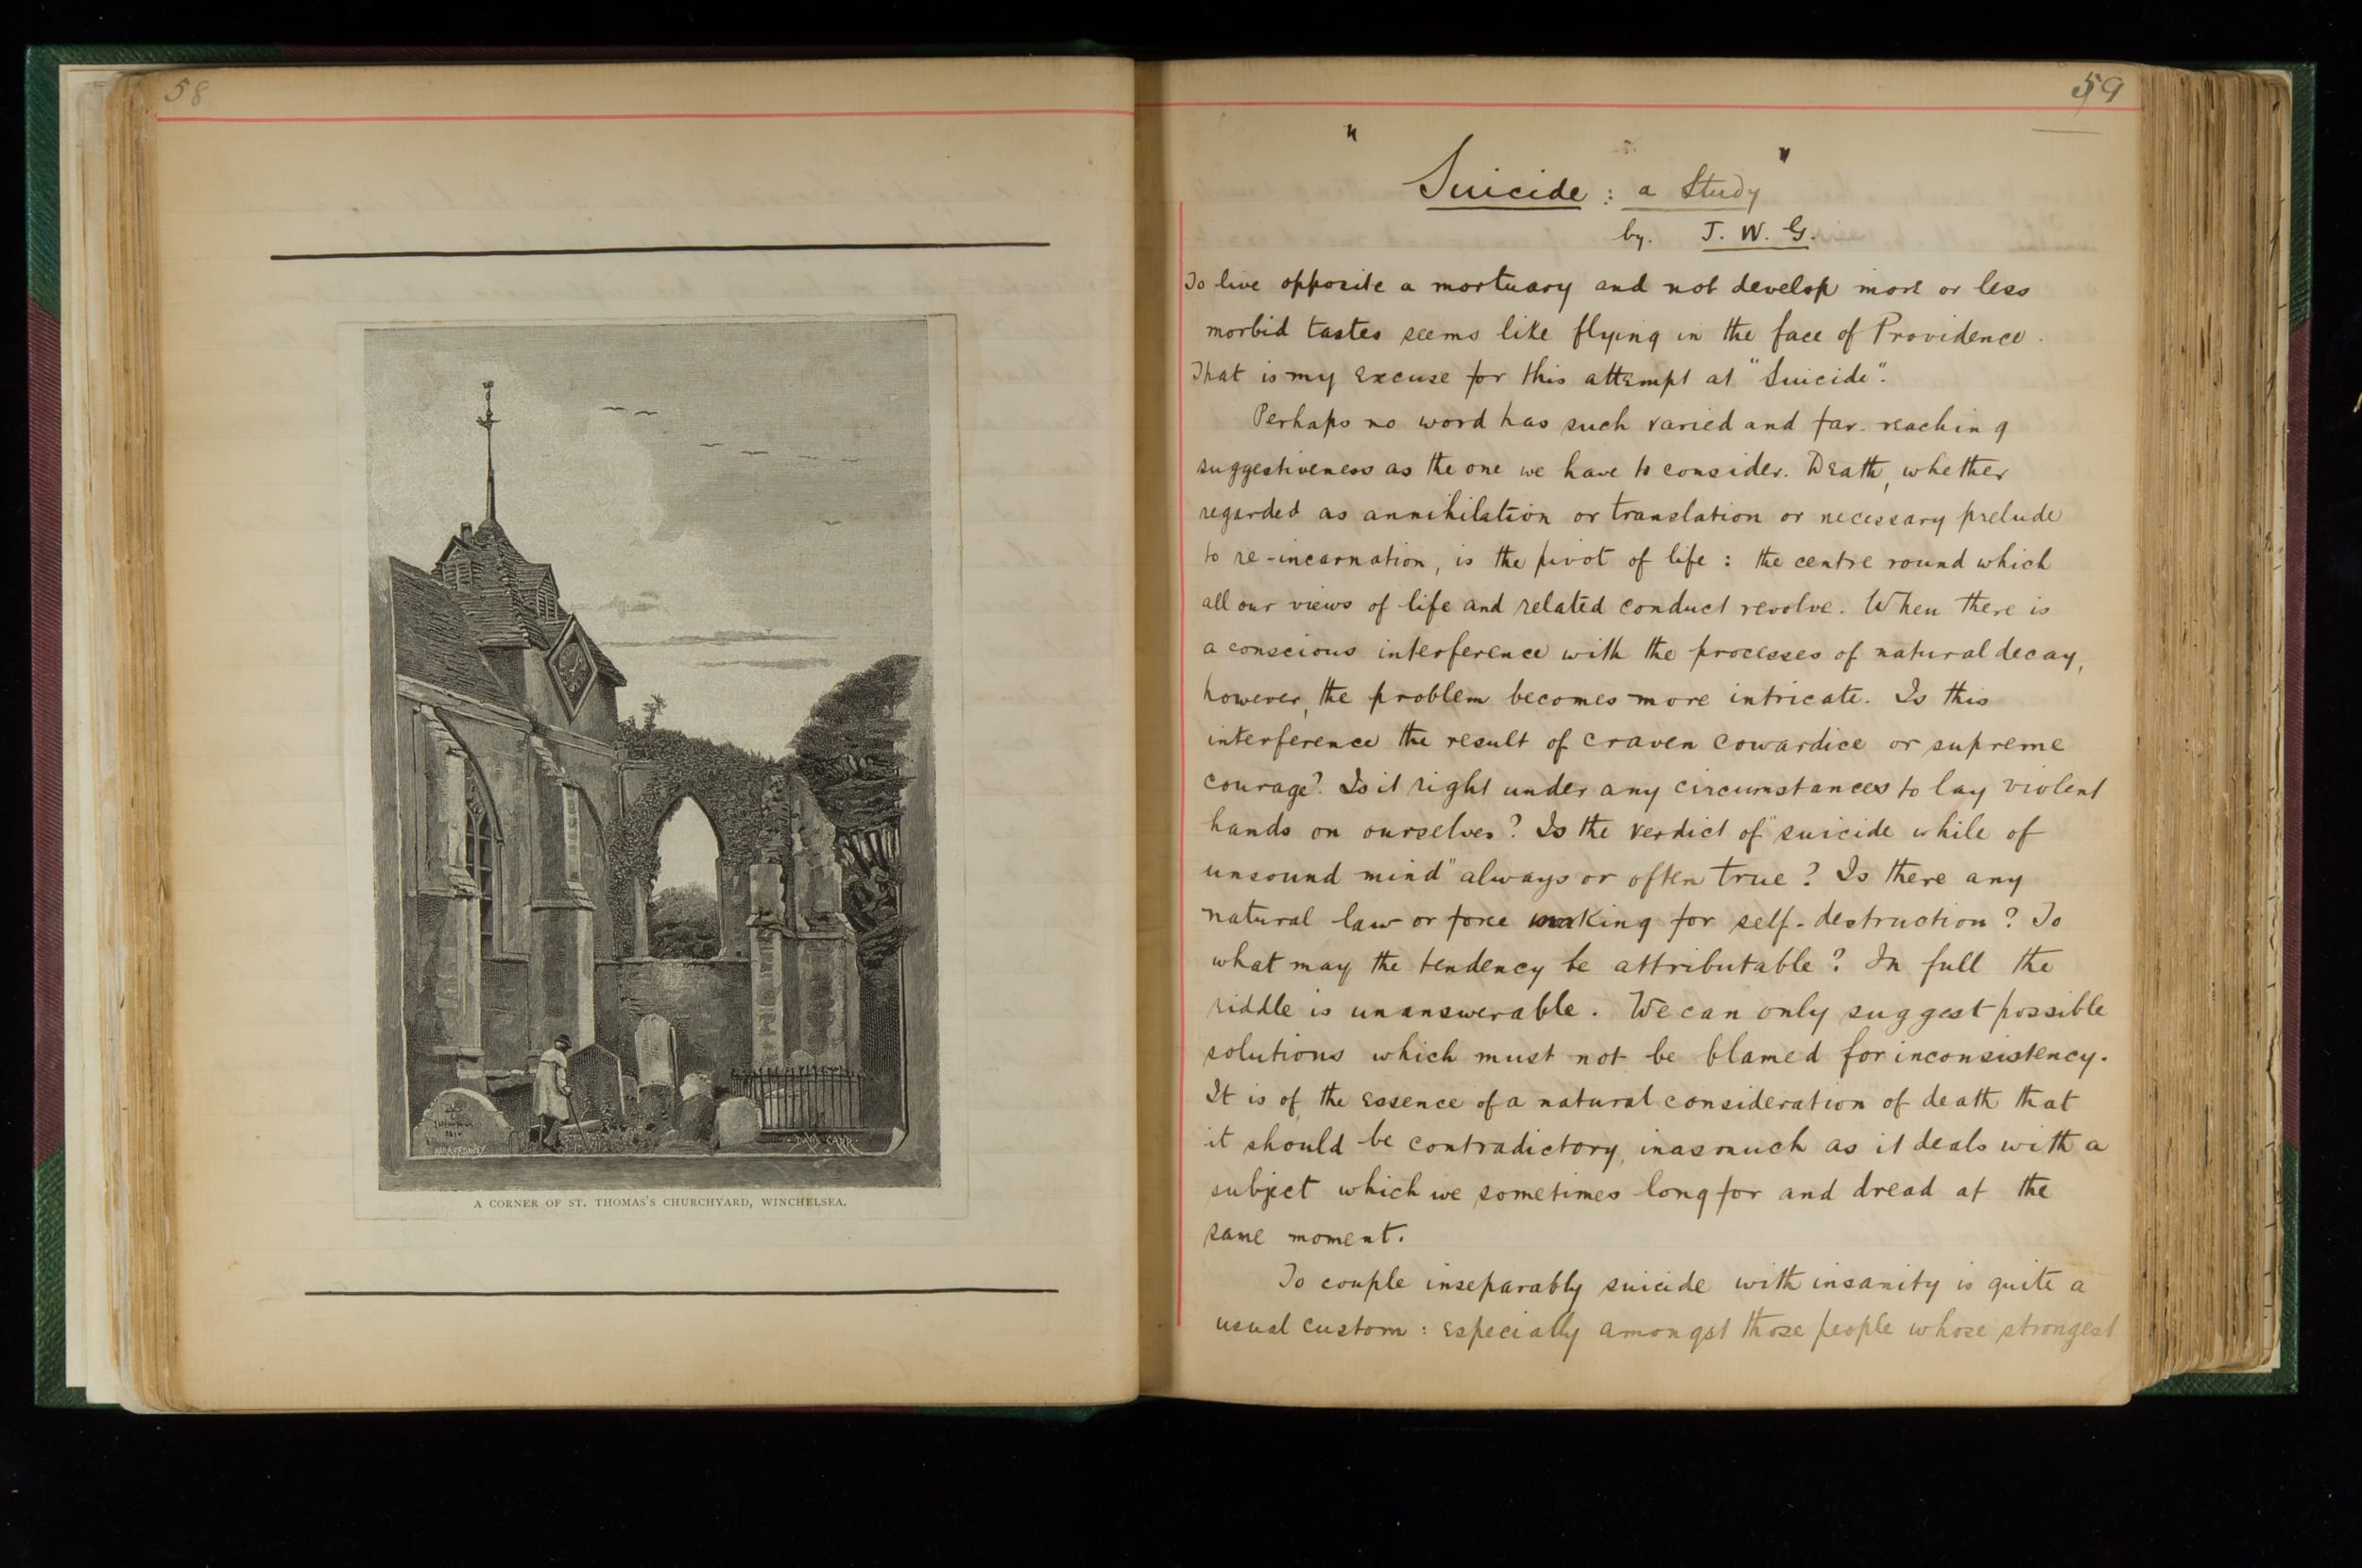 58
A CORNER OF ST. THOMAS'S CHURCHYARD, WINCHELSEA.
DAVID CARR
59
"Suicide : a Study"
by. J. W. G.
To live opposite a mortuary and not develop more or less
morbid tastes seems like flying in the face of Providence.
That is my excuse for this attempt at "Suicide".
Perhaps no word has such varied and far-reaching
suggestiveness as the one we have to consider. Death, whether
regarded as annihilation or translation or necessary prelude
to re-incarnation, is the pivot of life : the centre round which
all our views of life and related conduct revolve. When there is
a conscious interference with the processes of natural decay,
however, the problem becomes more intricate. Is this
interference the result of craven cowardice or supreme
courage? Is it right under any circumstances to lay violent
hands on ourselves? Is the verdict of "suicide while of
unsound mind" always or often true? Is there any
natural law or force making for self-destruction? To
what may the tendency be attributable? In full the
riddle is unanswerable. We can only suggest possible
solutions which must not be blamed for inconsistency.
It is of the essence of a natural consideration of death that
it should be contradictory, inasmuch as it deals with a
subject which we sometimes long for and dread at the
same moment.
To couple inseparably suicide with insanity is quite a
usual custom : especially amongst those people whose strongest